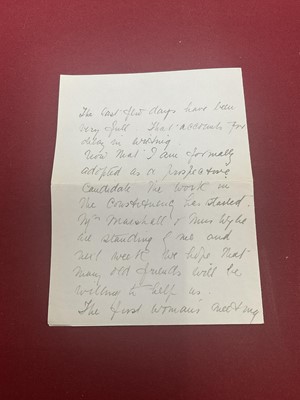 The last few days have been
very full. That accounts for
delay in writing.
Now that I am formally
adopted as a prospective
Candidate the work in
the Constituency has started.
Mrs Marshall & Miss Wylie
are standing by me and
next week we hope that
many old friends will be
willing to help us.
The first woman's meeting